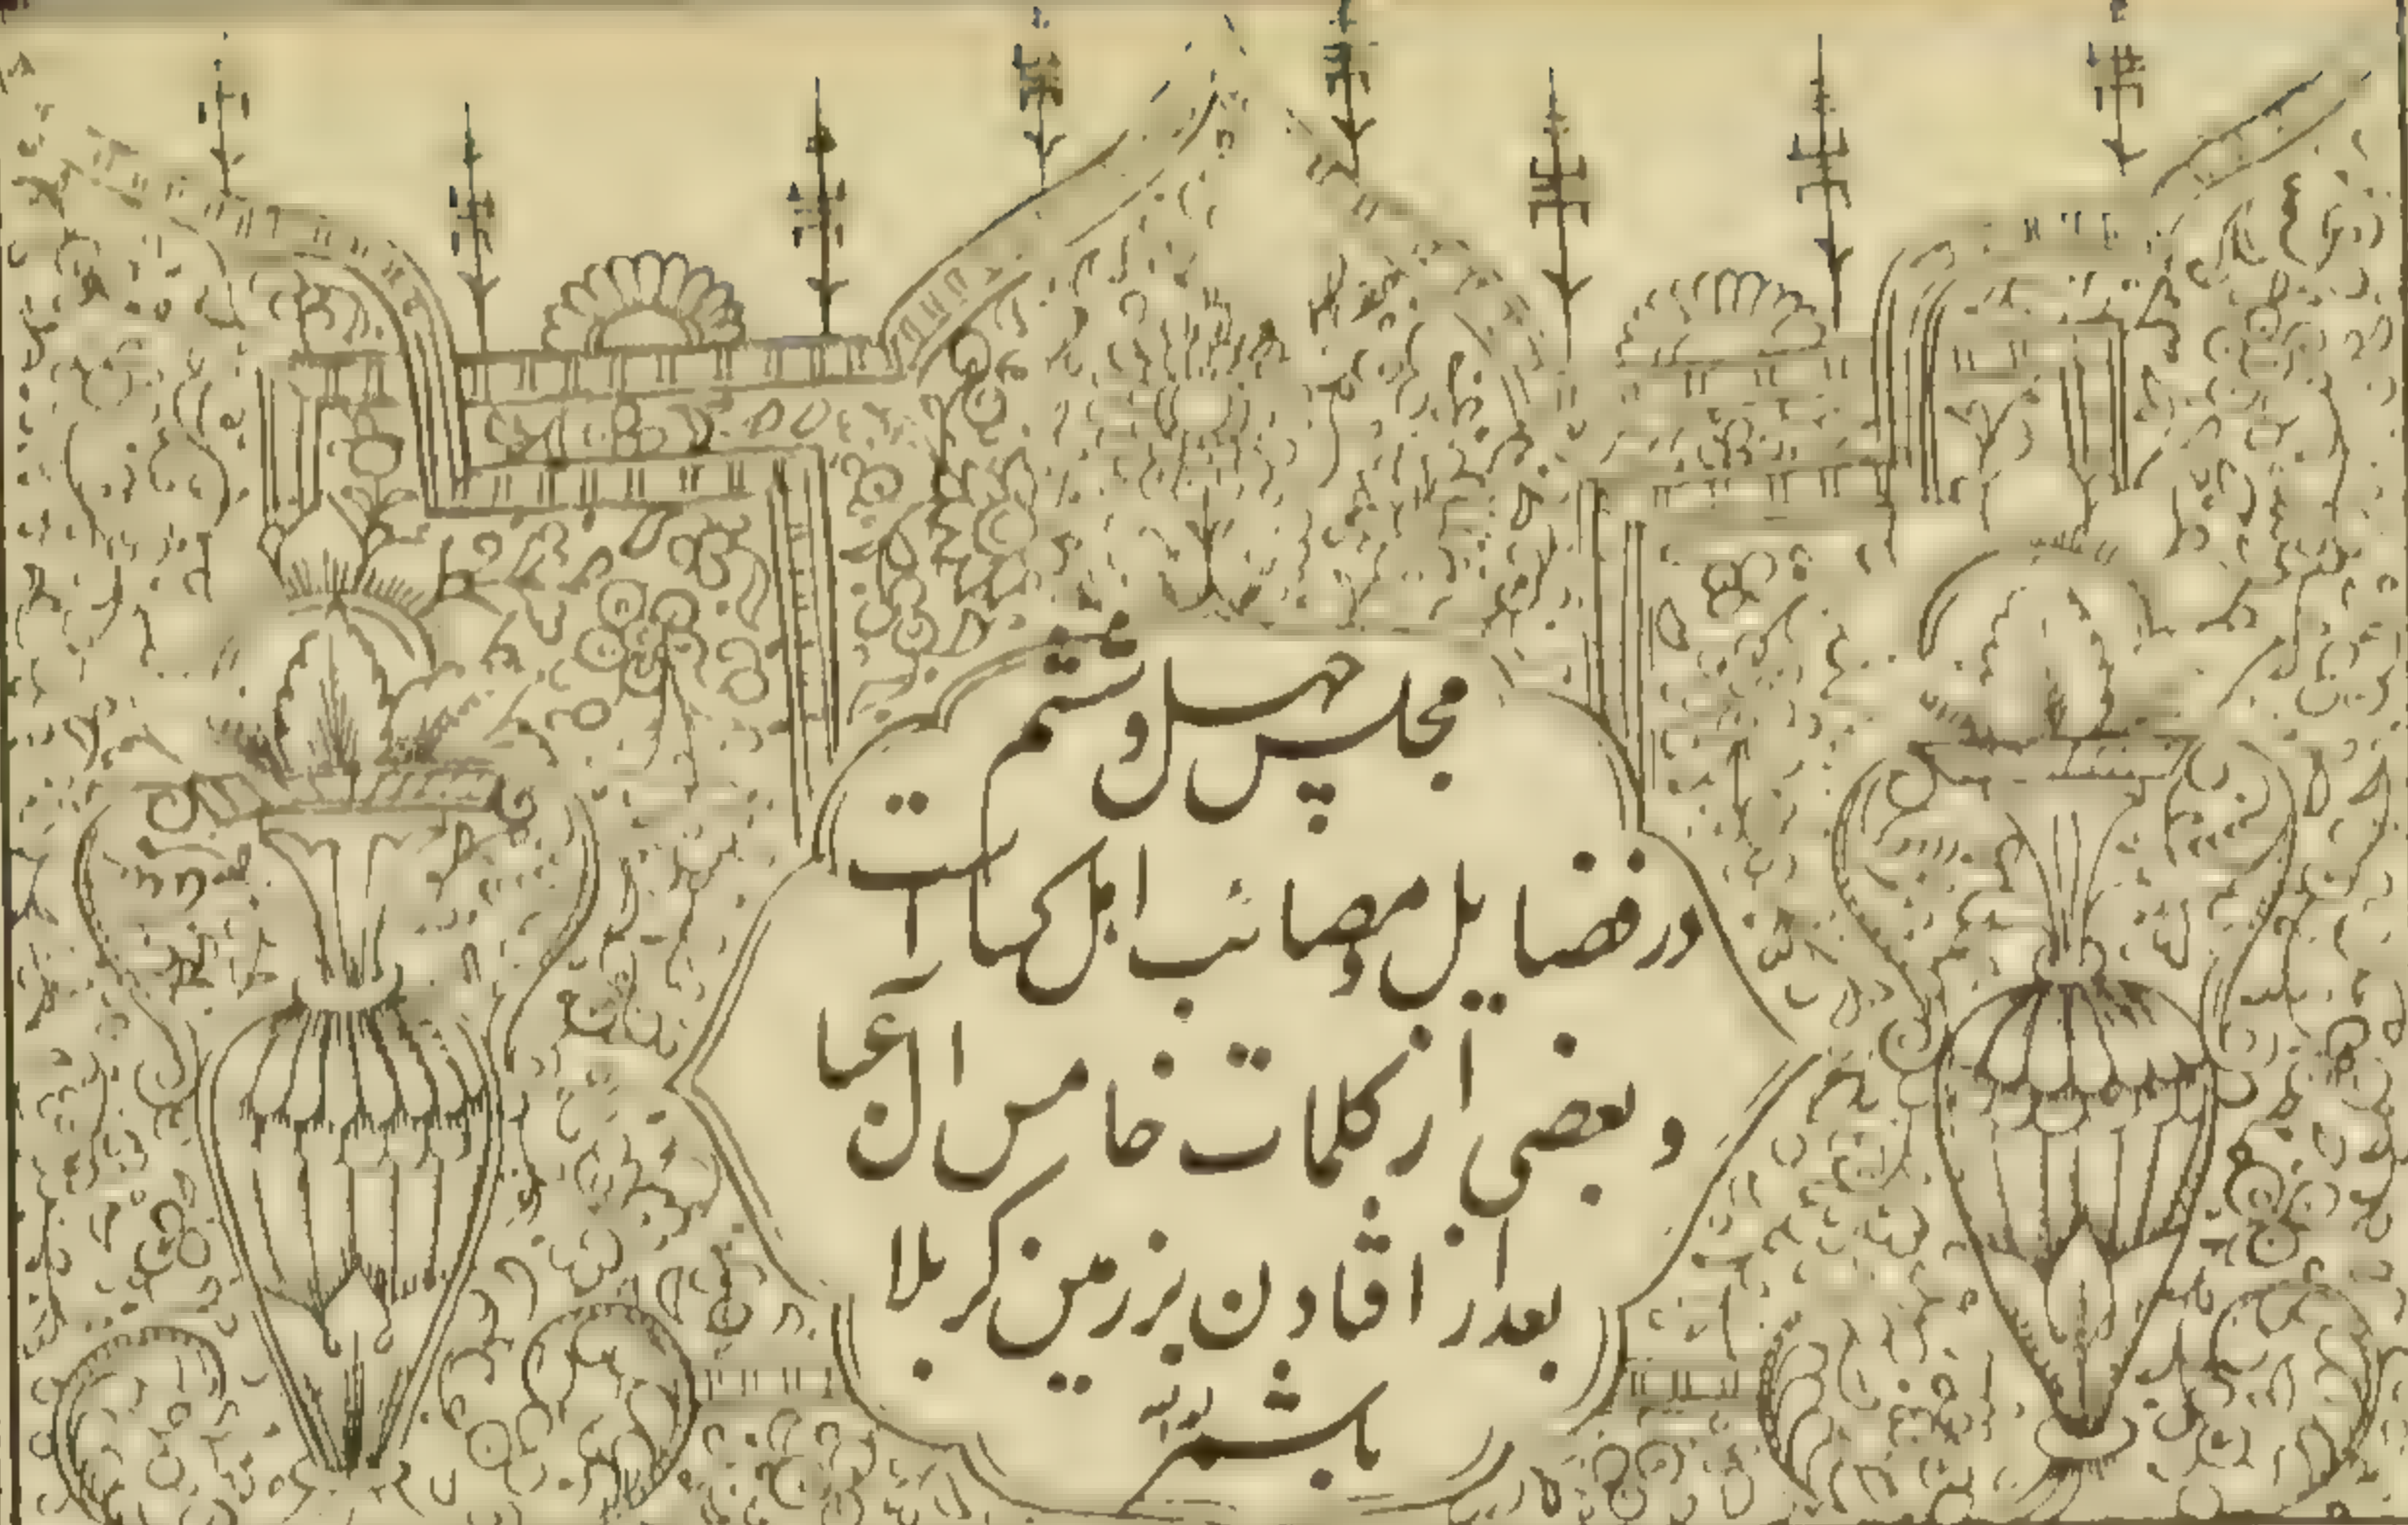 مجلس چهل و ششم
در فضایل و مصائب اهل کسا است
و بعضی از کلمات خامس آل عبا
بعد از افتادن بر زمین کربلا
با شمر